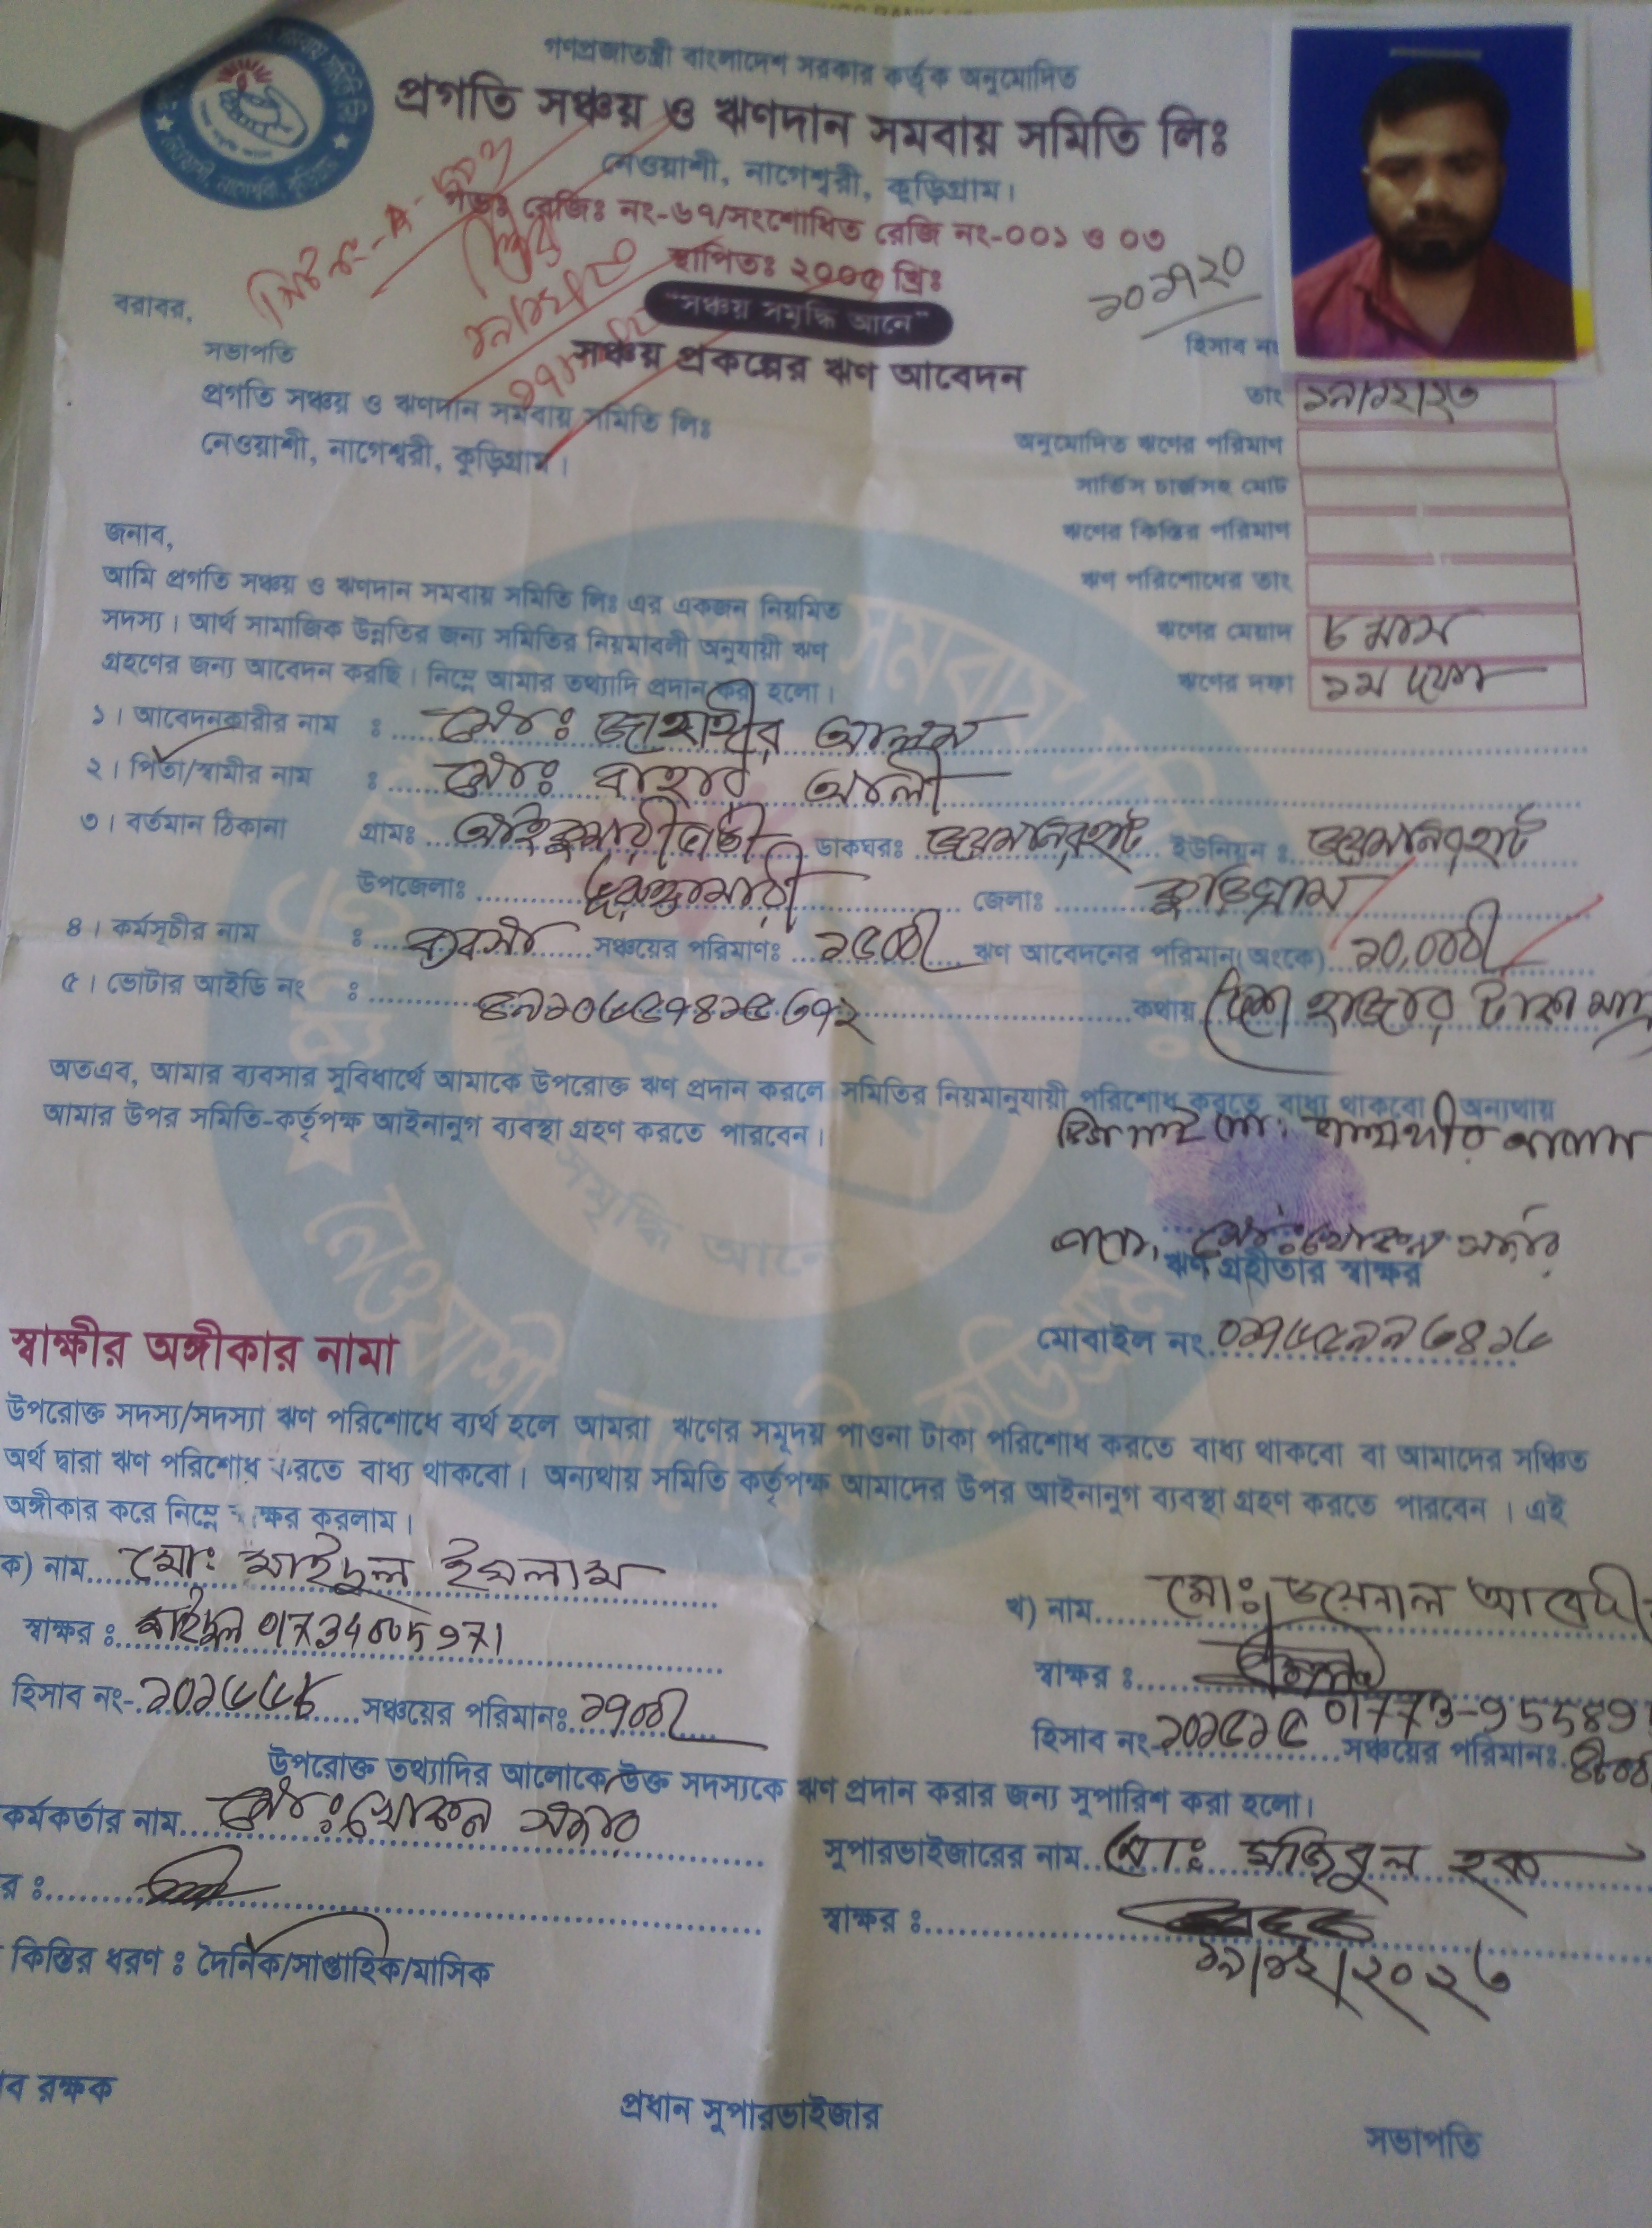 গণপ্রজাতন্ত্রী বাংলাদেশ সরকার কর্তৃক অনুমোদিত
প্রগতি সঞ্চয় ও ঋণদান সমবায় সমিতি লিঃ
নেওয়াশী, নাগেশ্বরী, কুড়িগ্রাম।
রেজিঃ নং-৬৭/সংশোধিত রেজি নং-০০১ ও ০৩
স্থাপিতঃ ২০০৫ খ্রিঃ
"সঞ্চয় সমৃদ্ধি আনে"
সঞ্চয় প্রকল্পের ঋণ আবেদন
বরাবর,
সভাপতি
প্রগতি সঞ্চয় ও ঋণদান সমবায় সমিতি লিঃ
নেওয়াশী, নাগেশ্বরী, কুড়িগ্রাম।
১০১৭২০
হিসাব নং
তাং ১৯/১২/২৩
অনুমোদিত ঋণের পরিমাণ
সার্ভিস চার্জসহ মোট
ঋণের কিস্তির পরিমাণ
ঋণ পরিশোধের তাং
ঋণের মেয়াদ ৮ মাস
ঋণের দফা ১ম দফা
জনাব,
আমি প্রগতি সঞ্চয় ও ঋণদান সমবায় সমিতি লিঃ এর একজন নিয়মিত
সদস্য। আর্থ সামাজিক উন্নতির জন্য সমিতির নিয়মাবলী অনুযায়ী ঋণ
গ্রহণের জন্য আবেদন করছি। নিম্নে আমার তথ্যাদি প্রদান করা হলো।
১। আবেদনকারীর নাম : মোঃ জাহাঙ্গীর আলম
২। পিতা/স্বামীর নাম : মোঃ বাহার আলী
৩। বর্তমান ঠিকানা গ্রামঃ ডাকঘরঃ জয়মনিরহাট ইউনিয়ন : জয়মনিরহাট
উপজেলাঃ ভূরুঙ্গামারী জেলাঃ কুড়িগ্রাম
৪। কর্মসূচীর নাম : ব্যবসা সঞ্চয়ের পরিমাণঃ ১৫০০/ ঋণ আবেদনের পরিমান(অংকে) ১০,০০০/
৫। ভোটার আইডি নং : কথায় দশ হাজার টাকা মাত্র
অতএব, আমার ব্যবসার সুবিধার্থে আমাকে উপরোক্ত ঋণ প্রদান করলে সমিতির নিয়মানুযায়ী পরিশোধ করতে বাধ্য থাকবো। অন্যথায়
আমার উপর সমিতি-কর্তৃপক্ষ আইনানুগ ব্যবস্থা গ্রহণ করতে পারবেন।
মোঃ জাহাঙ্গীর আলম
মোঃ খোকন সরদার
ঋণ গ্রহীতার স্বাক্ষর
মোবাইল নং ০১৭৬৫৯৯৩৪১৬
স্বাক্ষীর অঙ্গীকার নামা
উপরোক্ত সদস্য/সদস্যা ঋণ পরিশোধে ব্যর্থ হলে আমরা ঋণের সমূদয় পাওনা টাকা পরিশোধ করতে বাধ্য থাকবো বা আমাদের সঞ্চিত
অর্থ দ্বারা ঋণ পরিশোধ করতে বাধ্য থাকবো। অন্যথায় সমিতি কর্তৃপক্ষ আমাদের উপর আইনানুগ ব্যবস্থা গ্রহণ করতে পারবেন। এই
অঙ্গীকার করে নিম্নে স্বাক্ষর করলাম।
ক) নাম মোঃ সাইদুল ইসলাম
স্বাক্ষর : সাইদুল
হিসাব নং- ১০১৬৬৮ সঞ্চয়ের পরিমানঃ ১৭০০/
খ) নাম মোঃ জয়নাল আবেদী
স্বাক্ষর :
01773-95589
হিসাব নং ১০১৫১৫ সঞ্চয়ের পরিমানঃ
উপরোক্ত তথ্যাদির আলোকে উক্ত সদস্যকে ঋণ প্রদান করার জন্য সুপারিশ করা হলো।
কর্মকর্তার নাম মোঃ খোকন সরদার
সুপারভাইজারের নাম মোঃ মজিবুল হক
র :
স্বাক্ষর :
১৯/১২/২০২৩
কিস্তির ধরণ : দৈনিক/সাপ্তাহিক/মাসিক
ব রক্ষক
প্রধান সুপারভাইজার
সভাপতি